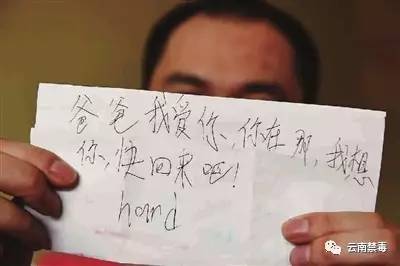 爸爸我爱你,你在那,我想
你,快回来吧!
hand
云南禁毒